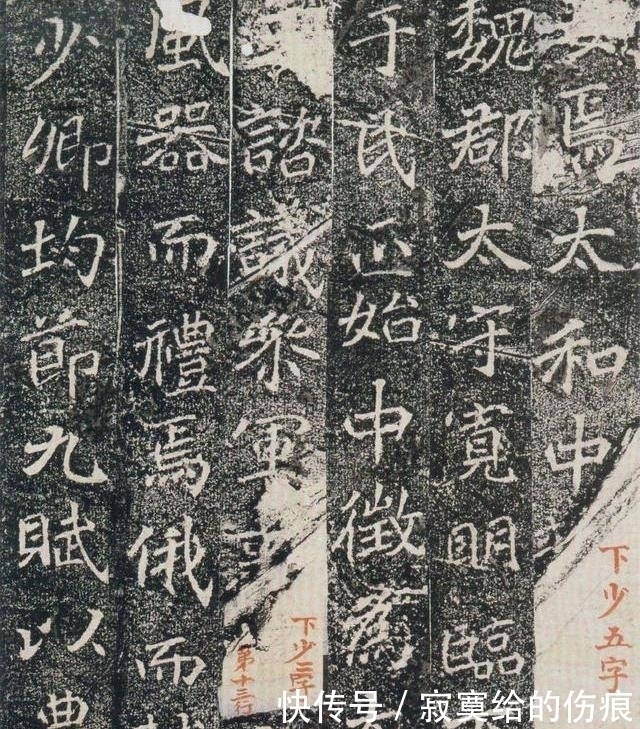 焉太和中
下少五字
魏郡太守寬明臨
于氏正始中徵
諮議參軍
下少二字
第十三行
風器而禮焉俄而
少卿均節九賦以典
快传号 / 寂寞给的伤痕